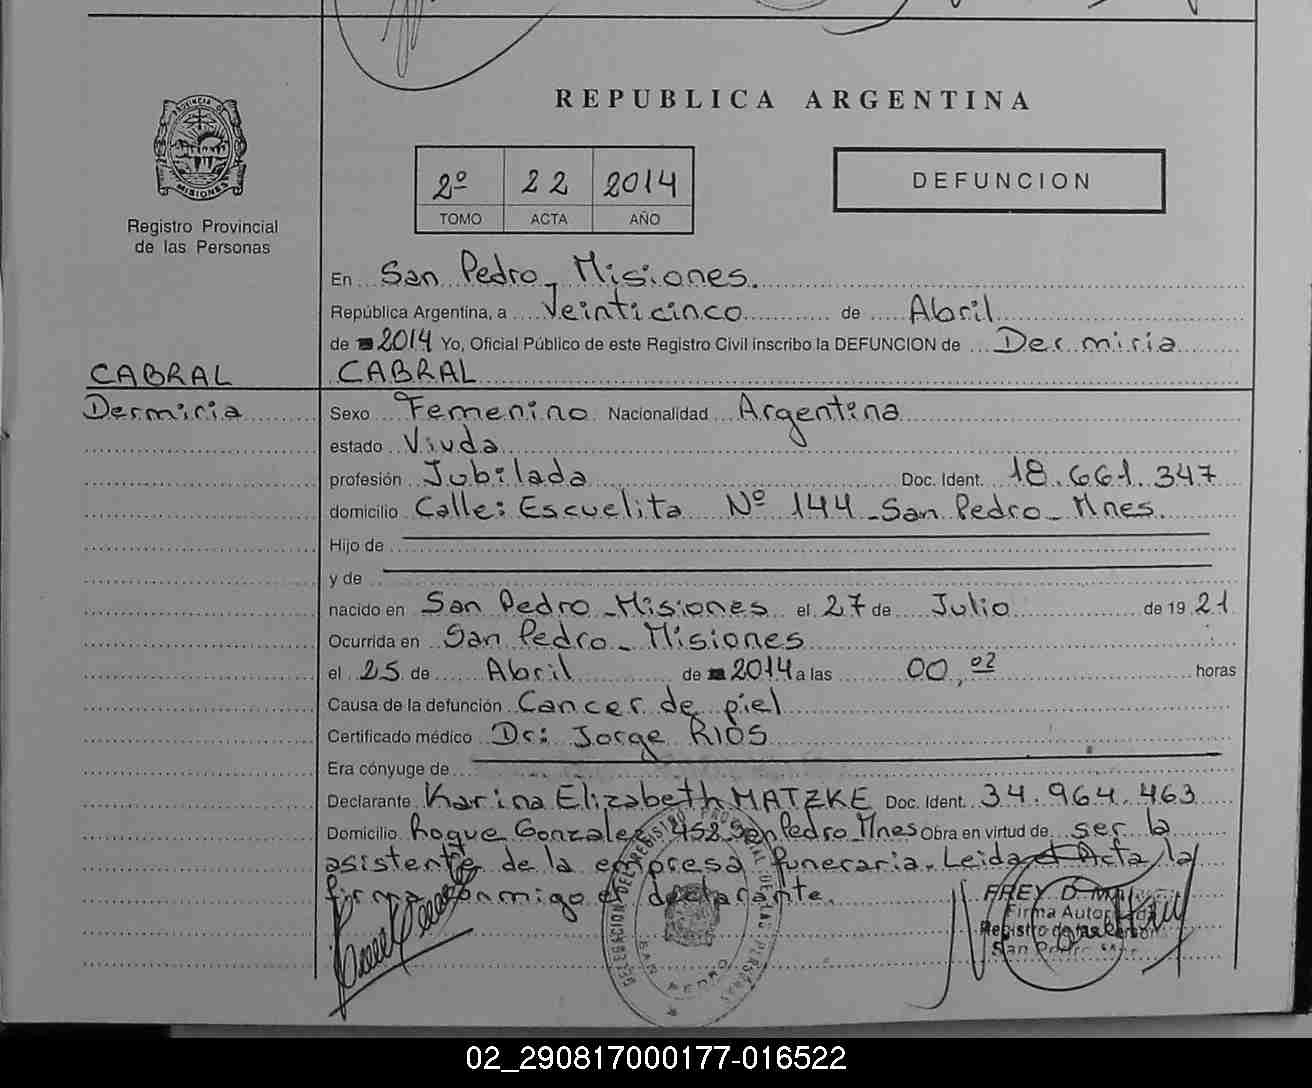 PROVINCIA DE
MISIONES
Registro Provincial
de las Personas
REPUBLICA ARGENTINA
2º 22 2014
TOMO ACTA AÑO
DEFUNCION
En San Pedro - Misiones.
República Argentina, a Veinticinco de Abril
de 2014 Yo, Oficial Público de este Registro Civil inscribo la DEFUNCION de Dermiria
CABRAL
CABRAL
Dermiria
Sexo Femenino Nacionalidad Argentina
estado Viuda
profesión Jubilada Doc. Ident. 18.661.347
domicilio Calle: Escuelita Nº 144 - San Pedro - Mnes.
Hijo de
y de
nacido en San Pedro - Misiones el 27 de Julio de 19 21
Ocurrida en San Pedro - Misiones
el 25 de Abril de 2014 a las 00,02 horas
Causa de la defunción Cancer de piel
Certificado médico Dr: Jorge RIOS
Era cónyuge de
Declarante Karina Elizabeth MATZKE Doc. Ident. 34.964.463
Domicilio Roque Gonzalez 452 San Pedro - Mnes Obra en virtud de ser la
asistente de la empresa funeraria. Leida el Acta, la
firma conmigo el declarante.
DELEGACION DEL REGISTRO PROVINCIAL DE LAS PERSONAS
SAN PEDRO
FREY D.
Firma Autorizada
Registro de las Personas
San Pedro
02_290817000177-016522